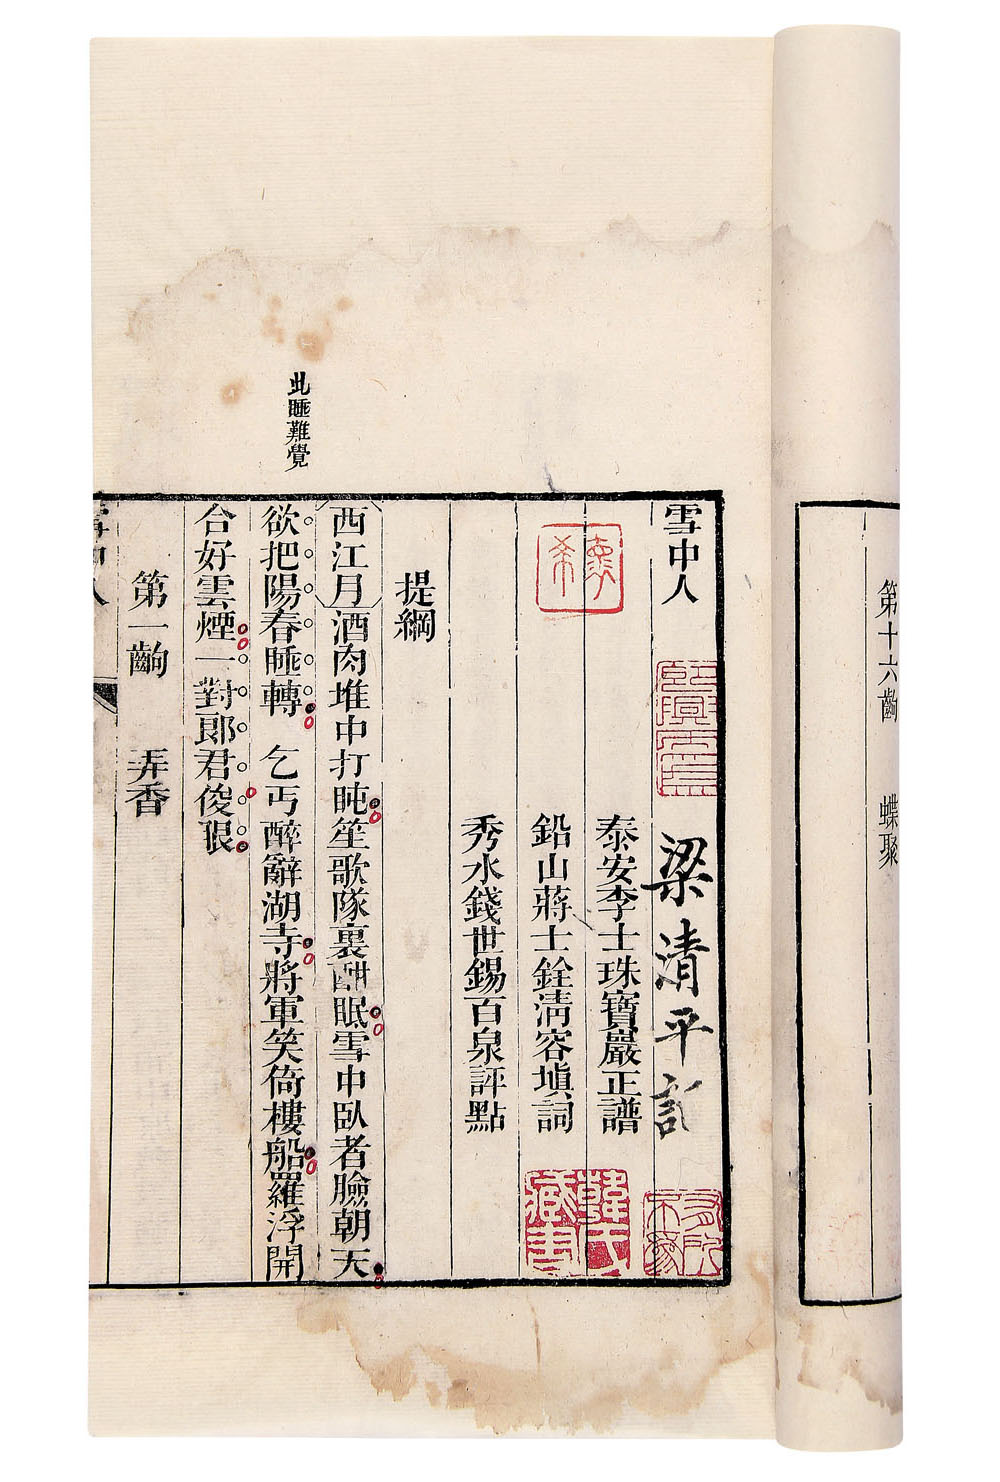 第十六齣　蝶聚
雪中人
梁清平訂
泰安李士珠寶巖正譜
鉛山蔣士銓清容塡詞
秀水錢世錫百泉評點
提綱
西江月酒肉堆中打盹笙歌隊裏酣眠雪中臥者臉朝天
此睡難覺
欲把陽春睡轉　乞丐醉辭湖寺將軍笑倚樓船羅浮開
合好雲煙一對郎君俊眼
第一齣　弄香
雪中人
韓氏藏書